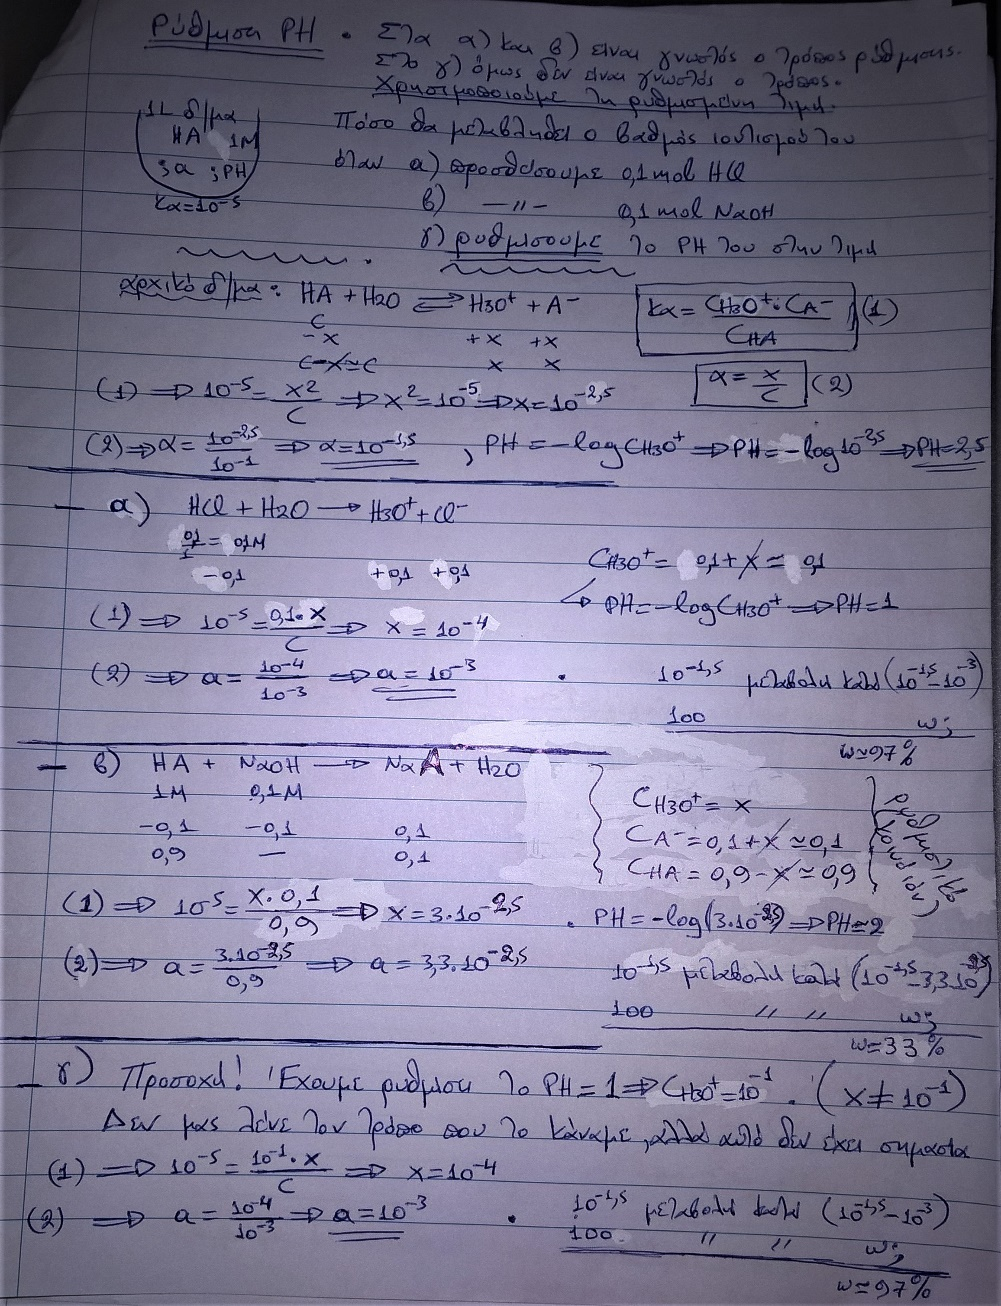 Ρύθμιση PH • Στα α) και β) είναι γνωστός ο τρόπος ρύθμισης.
Στο γ) όμως δεν είναι γνωστός ο τρόπος.
Χρησιμοποιούμε τη ρυθμισμένη τιμή.
1L δ/μα
HA 1M
;α ;PH
Kα=10⁻⁵
Πόσο θα μεταβληθεί ο βαθμός ιοντισμού του
όταν α) προσθέσουμε 0,1 mol HCl
β) —"— 0,1 mol NaOH
γ) ρυθμίσουμε το PH του στην τιμή
αρχικό δ/μα: HA + H2O ⇌ H3O⁺ + A⁻
C
-x +x +x
C-x≃C x x
Kα = CH3O⁺·CA⁻ / CHA (1)
α = x/C (2)
(1) ⇒ 10⁻⁵ = x²/C ⇒ x² = 10⁻⁵ ⇒ x = 10⁻²,⁵
(2) ⇒ α = 10⁻²,⁵/10⁻¹ ⇒ α = 10⁻¹,⁵ , PH = -logCH3O⁺ ⇒ PH = -log10⁻²,⁵ ⇒ PH = 2,5
— α) HCl + H2O → H3O⁺ + Cl⁻
0,1/1 = 0,1M
-0,1 +0,1 +0,1
CH3O⁺ = 0,1 + x ≃ 0,1
PH = -logCH3O⁺ ⇒ PH = 1
(1) ⇒ 10⁻⁵ = 0,1·x/C ⇒ x = 10⁻⁴
(2) ⇒ α = 10⁻⁴/10⁻³ ⇒ α = 10⁻³ •
10⁻¹,⁵ μεταβολή κατά (10⁻¹,⁵-10⁻³)
100 ω;
ω≃97%
— β) HA + NaOH → NaA + H2O
1M 0,1M
-0,1 -0,1 0,1
0,9 — 0,1
CH3O⁺ = x
CA⁻ = 0,1 + x ≃ 0,1
CHA = 0,9 - x ≃ 0,9
(1) ⇒ 10⁻⁵ = x·0,1/0,9 ⇒ x = 3·10⁻²,⁵ • PH = -log(3·10⁻²,⁵) ⇒ PH≃2
(2) ⇒ α = 3·10⁻²,⁵/0,9 ⇒ α = 3,3·10⁻²,⁵
10⁻¹,⁵ μεταβολή κατά (10⁻¹,⁵-3,3·10⁻²,⁵)
100 " " ω;
ω=33%
— γ) Προσοχή! Έχουμε ρύθμιση το PH = 1 ⇒ CH3O⁺ = 10⁻¹. (x ≠ 10⁻¹)
Δεν μας λένε τον τρόπο που το κάναμε, αλλά αυτό δεν έχει σημασία
(1) ⇒ 10⁻⁵ = 10⁻¹·x/C ⇒ x = 10⁻⁴
(2) ⇒ α = 10⁻⁴/10⁻³ ⇒ α = 10⁻³ •
10⁻¹,⁵ μεταβολή κατά (10⁻¹,⁵-10⁻³)
100 " " ω;
ω≃97%